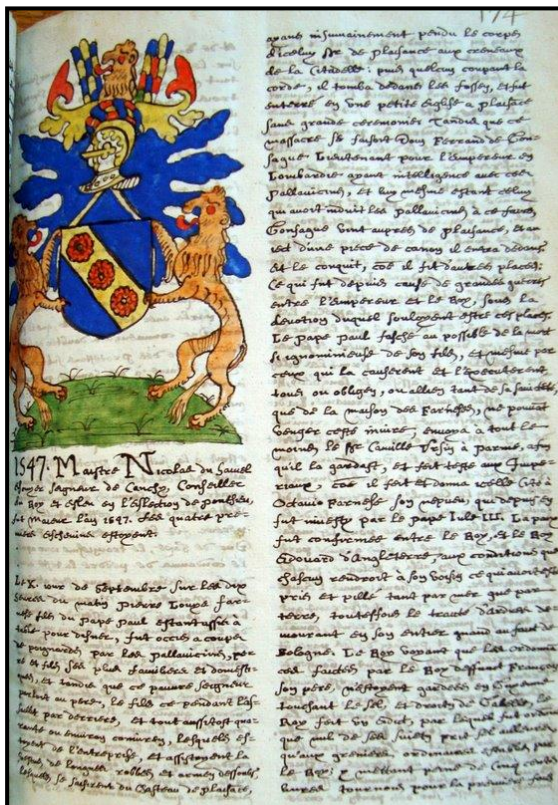 174
1547. Maistre Nicolas du
Escuyer seigneur de Canchy Conseiller
du Roy et esleu en l'Eslection de ponthieu,
fut Maieur l'an 1547. Ses quatre pre-
miers eschevins estoyent.
Le X. iour de Septembre sur les dix
heures du matin Pierre Louys Far-
nese fils du Pape Paul estant assis a
table pour disner, fut occis a coups
de poignardes par les Pallavicins, pe-
re et fils ses plus familiers et domesti-
ques, et tandis que ce pauvre seigneur
parloit au pere, le fils ce pendant l'as-
par derriere, et tout aussitost qua-
rante ou environ coniurez, lesquels es-
toyent de l'entreprise, et assistoyent la
de longues robbes et armez dessoubs,
lesquels se saisirent du Chasteau de plaisace,
ayans inhumainement pendu le corps
d'iceluy Sr de plaisance aux creneaux
de la Citadelle: puis quelcun coupant la
corde, il tomba dedans les fossez, et fut
enterré en une petite Eglise a plaisace
sans grande ceremonie. Tandis que ce
massacre se faisoit Dom Ferrand de Gon-
sague Lieutenant pour l'Empereur en
Lombardie ayant intelligence avec ces
Pallavicins, et luy mesme estant celuy
qui avoit induit les pallavicins a ce faire,
Gonsague vint aupres de plaisance, et
d'une piece de canon il entra dedans
et le conquit, coe il fit d'autres places:
Ce qui fut depuis cause de grandes guerres
entre l'Empereur et le Roy, sous la
devotion duquel souloyent estre ces places.
Le Pape Paul fasché au possible de la mort
si ignominieuse de son fils, et mesme par
ceux qui la causerent et l'executerent
tous ou obligez, ou alliez tant de sa sainteté
que de la maison des Farneses, ne pouvant
venger ceste iniure, envoya a tout le
moins le Sr Camille Ursin a parme, afin
qu'il la gardast, et feit teste aux Impe-
riaux, coe il feit et donna icelle Cité a
Octavio Farnese son nepveu, qui depuis en
fut investy par le pape Iule III. La paix
fut confirmee entre le Roy, et le Roy
Edouard d'Angleterre aux conditions que
chascun rendroit a son voisin ce qui
pris et pillé tant par mer que par
terre, toutesfois le traité d'Ardres
mourant en son entier quand au faict de
Bologne. Le Roy voyant que les ordon-
ces faictes par le Roy deffunt François
son pere, n'estoyent gardees en
touchant le sel, et droits de Gabelle, le
Roy feit un Edict, par lequel fut ordonné
que nul de ses suiets prit sel ailleurs
qu'aux greniers ordinaires establis par
le Roy: y mettant peine de cinq cens
livres tournois pour la premiere fois